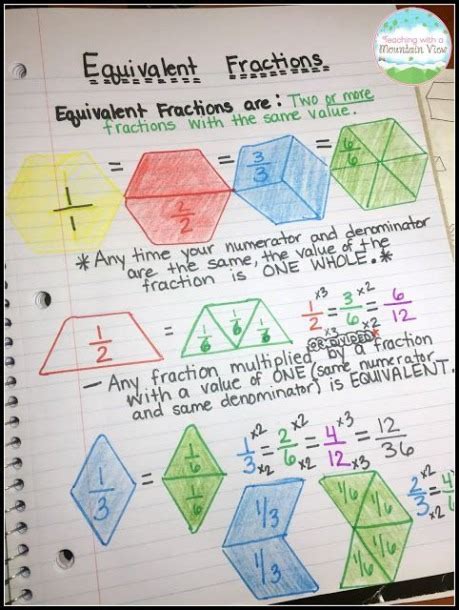 Teaching with a
Mountain View
Equivalent Fractions
Equivalent Fractions are: Two or more
fractions with the same value.
1/1 = 2/2 = 3/3 = 6/6
*Any time your numerator and denominator
are the same, the value of the
fraction is ONE WHOLE.*
1/2 = 1/6 1/6 1/6
1/2 x3 x3 = 3/6 x2 x2 = 6/12
OR DIVIDED
- Any fraction multiplied by a fraction
with a value of ONE (same numerator
and same denominator) is EQUIVALENT.
1/3 = 1/6 1/6
1/3 x2 x2 = 2/6 x2 x2 = 4/12 x3 x3 = 12/36
1/3 1/3
1/6 1/6 1/6 1/6
2/3 x2 x2 = 4/6